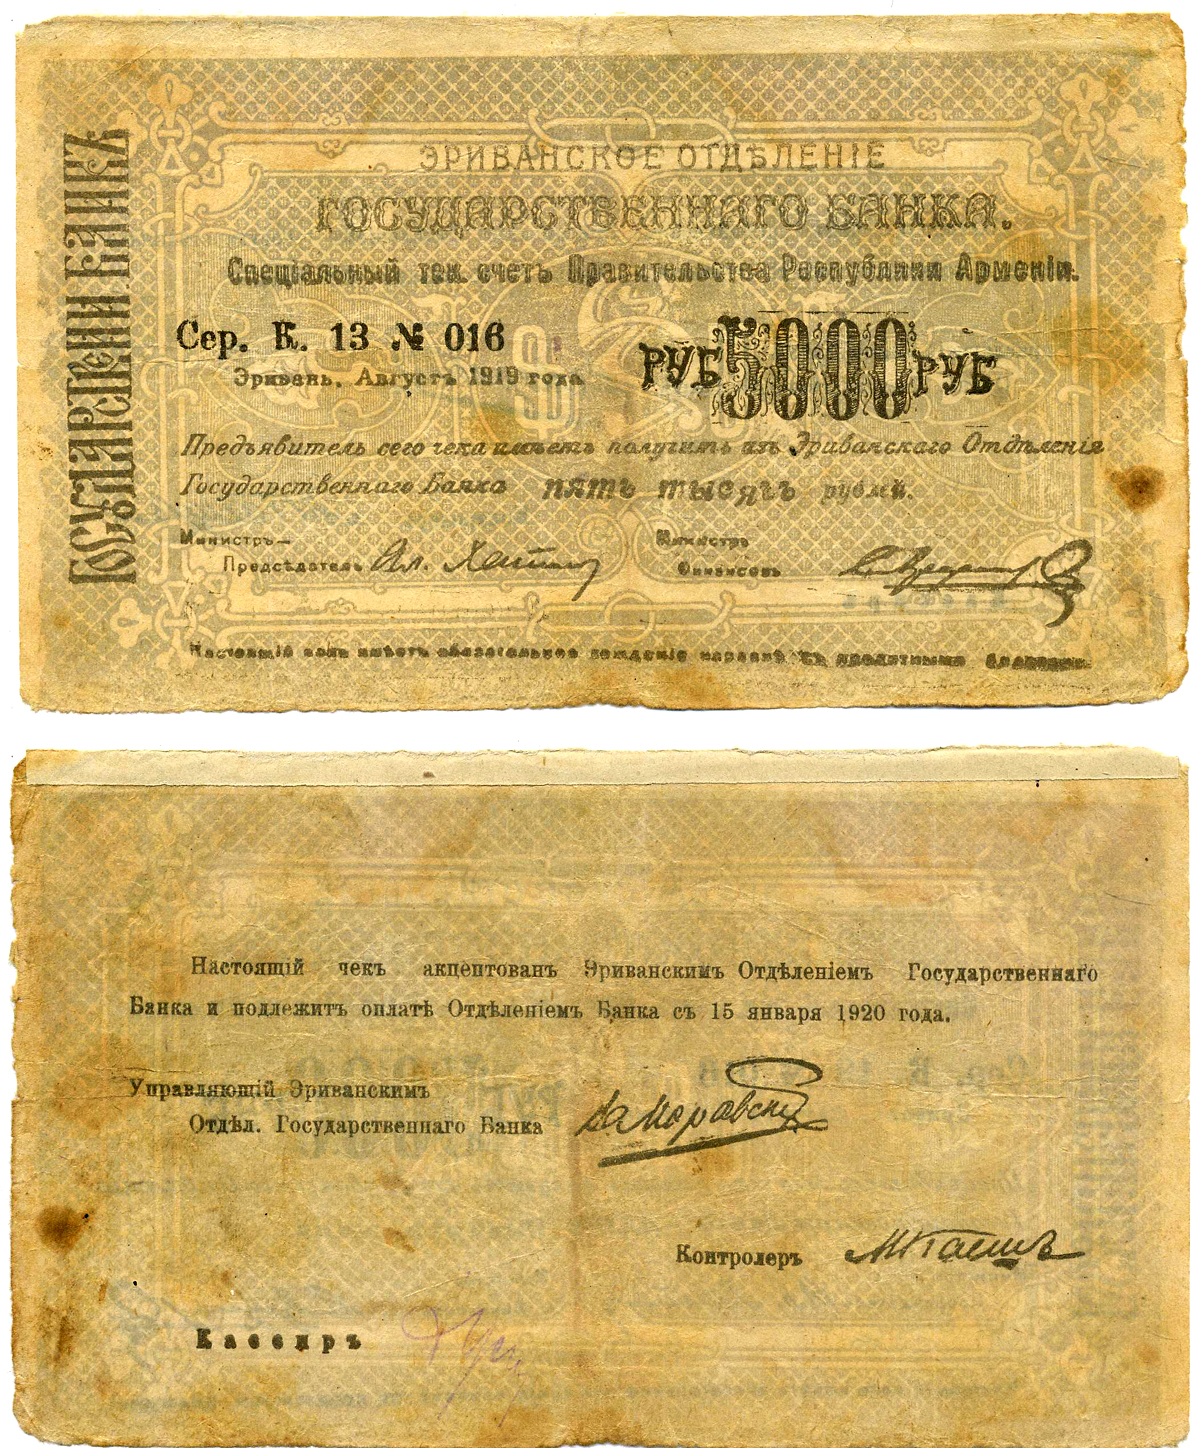 ГОСУДАРСТВЕН. БАНКЪ
ЭРИВАНСКОЕ ОТДѢЛЕНІЕ
ГОСУДАРСТВЕННАГО БАНКА.
Спеціальный тек. счетъ Правительства Республики Арменіи.
Сер. К. 13 № 016
РУБ 5000 РУБ
Эривань, Августъ 1919 года
Предъявитель сего чека имѣетъ получить изъ Эриванскаго Отдѣленія
Государственнаго Банка пять тысячъ рублей.
Министръ—
Предсѣдатель Ал. Хатис
Министръ
Финансовъ
Настоящій чекъ имѣетъ обязательное хожденіе наравнѣ съ кредитными
Настоящій чекъ акцептованъ Эриванскимъ Отдѣленіемъ Государственнаго
Банка и подлежитъ оплатѣ Отдѣленіемъ Банка съ 15 января 1920 года.
Управляющій Эриванскимъ
Отдѣл. Государственнаго Банка
Контролеръ
Кассиръ